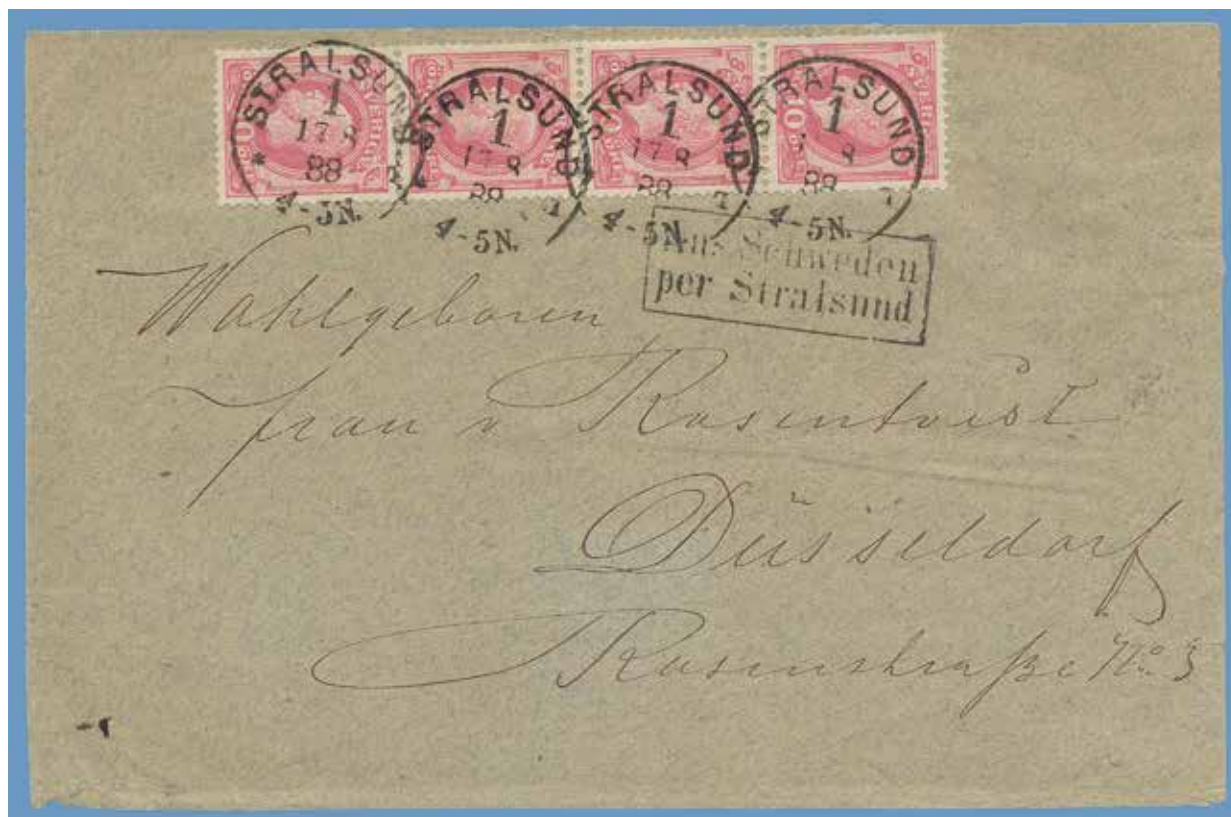 STRALSUND
1
17 8
88
4-5N.
STRALSUND
1
17 8
88
4-5N.
STRALSUND
1
17 8
88
4-5N.
STRALSUND
1
8
88
4-5N.
Aus Schweden
per Stralsund
Wohlgeboren
Frau v Rosentvist
Düsseldorf
Rosenstraße No. 3